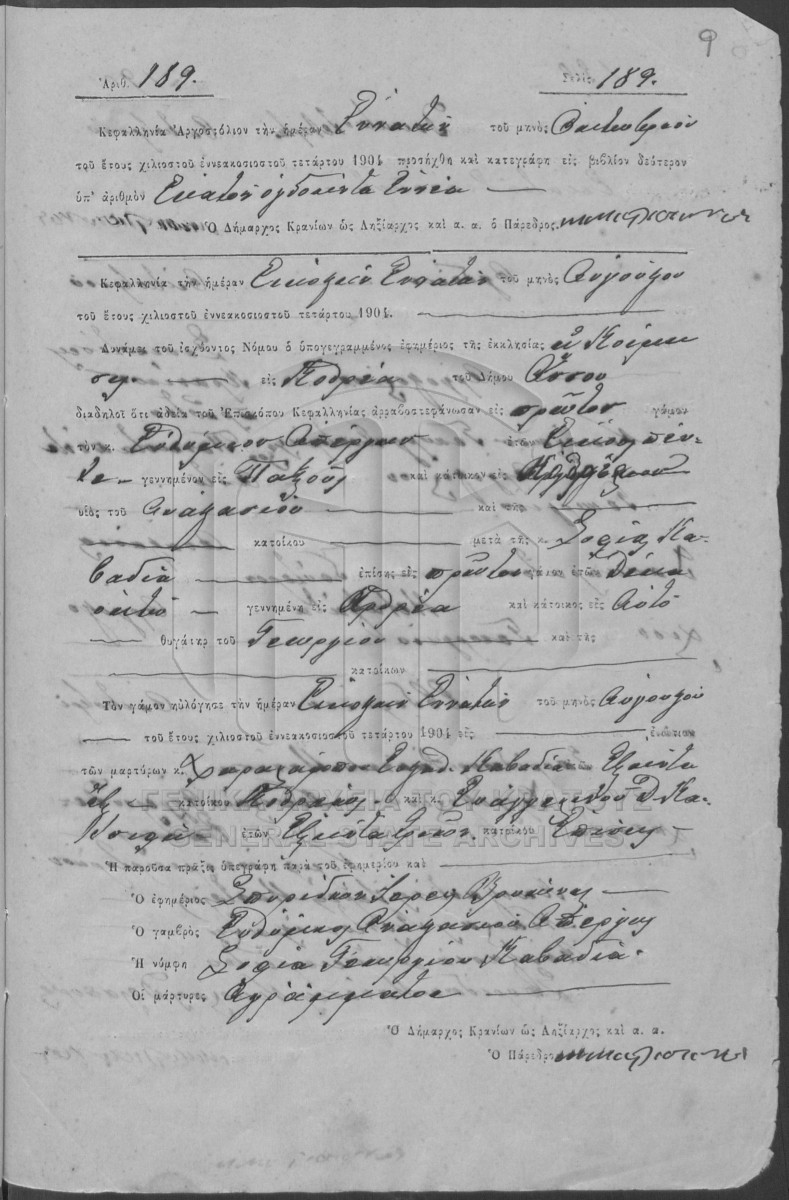 9
Ἀριθ. 189. Σελὶς 189.
Κεφαλληνία Ἀργοστόλιον τὴν ἡμέραν Ἐννάτην τοῦ μηνὸς Ὀκτωβρίου
τοῦ ἔτους χιλιοστοῦ ἐννεακοσιοστοῦ τετάρτου 1904 προσήχθη καὶ κατεγράφη εἰς βιβλίον δεύτερον
ὑπ' ἀριθμὸν Ἑκατὸν ὀγδοήκοντα ἐννέα
Ὁ Δήμαρχος Κρανίων ὡς Ληξίαρχος καὶ α. α. ὁ Πάρεδρος
Κεφαλληνία τὴν ἡμέραν Εἰκοστὴν Ἐννάτην τοῦ μηνὸς Αὐγούστου
τοῦ ἔτους χιλιοστοῦ ἐννεακοσιοστοῦ τετάρτου 1904.
Δυνάμει τοῦ ἰσχύοντος Νόμου ὁ ὑπογεγραμμένος ἐφημέριος τῆς ἐκκλησίας ἡ Κοίμη
σις εἰς Κοθρέα τοῦ Δήμου Ἄσσου
διαδηλοῖ ὅτι ἀδεία τοῦ Ἐπισκόπου Κεφαλληνίας ἀρραβοστεφάνωσαν εἰς πρῶτον γάμον
τὸν κ. Εὐθύμιον Ἀπέργην ἐτῶν Εἴκοσι πέν-
τε γεννημένον εἰς Παξοὺς καὶ κάτοικον εἰς
υἱὸς τοῦ Ἀναστασίου καὶ τῆς
κατοίκου μετὰ τῆς κ. Σοφίας Κα-
βαδία ἐπίσης εἰς πρῶτον γάμον ἐτῶν Δέκα
ὀκτὼ γεννημένη εἰς Κοθρέα καὶ κάτοικος εἰς Αὐτό
θυγάτηρ τοῦ Γεωργίου καὶ τῆς
κατοίκων
Τὸν γάμον ηὐλόγησε τὴν ἡμέραν Εἰκοστὴν Ἐννάτην τοῦ μηνὸς Αὐγούστου
τοῦ ἔτους χιλιοστοῦ ἐννεακοσιοστοῦ τετάρτου 1904 εἰς ἐνώπιον
τῶν μαρτύρων κ. Χαραλάμπου Καβαδία Ἑξήντα
ἓξ κατοίκου Κοθρέας καὶ κ. Εὐαγγελινοῦ Δ Κα-
ἐτῶν Ἑξήντα κατοίκου Ἐπίσης
Ἡ παροῦσα πρᾶξις ὑπεγράφη παρὰ τοῦ ἐφημερίου καὶ
Ὁ ἐφημέριος Σπυρίδων Ἱερεὺς
Ὁ γαμβρὸς Εὐθύμιος Ἀναστασίου Ἀπέργης
Ἡ νύμφη Σοφία Γεωργίου Καβαδία.
Οἱ μάρτυρες Ἀγράμματοι
Ὁ Δήμαρχος Κρανίων ὡς Ληξίαρχος καὶ α. α.
Ὁ Πάρεδρος
ΓΕΝΙΚΑ ΑΡΧΕΙΑ ΤΟΥ ΚΡΑΤΟΥΣ
GENERAL STATE ARCHIVES